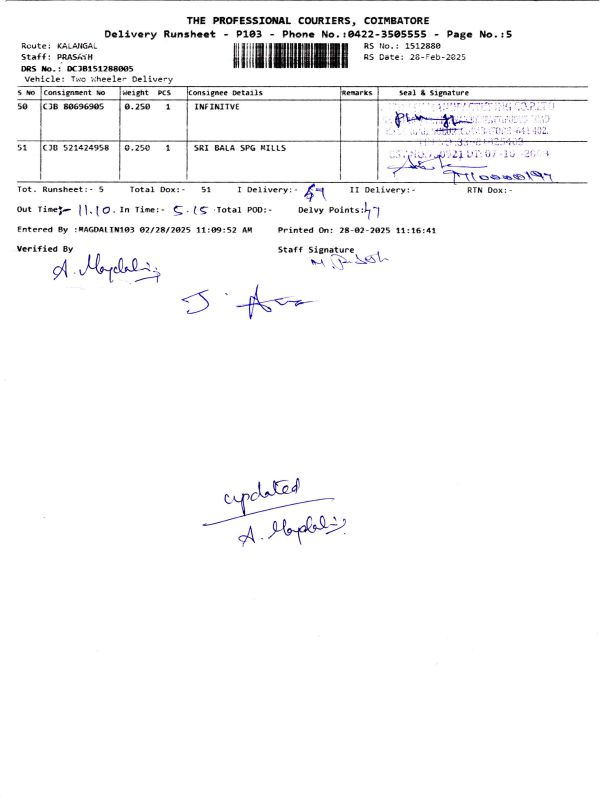 THE PROFESSIONAL COURIERS, COIMBATORE
Delivery Runsheet - P103 - Phone No.:0422-3505555 - Page No.:5
Route: KALANGAL RS No.: 1512880
Staff: PRASATH RS Date: 28-Feb-2025
DRS No.: DCJB151288005
Vehicle: Two Wheeler Delivery
S No Consignment No Weight PCS Consignee Details Remarks Seal & Signature
50 CJB 80696905 0.250 1 INFINITVE
51 CJB 521424958 0.250 1 SRI BALA SPG MILLS
Tot. Runsheet:- 5 Total Dox:- 51 I Delivery:- II Delivery:- RTN Dox:-
Out Time:- 11.10. In Time:- 5.15 Total POD:- Delvy Points: 47
Entered By :MAGDALIN103 02/28/2025 11:09:52 AM Printed On: 28-02-2025 11:16:41
Verified By Staff Signature
A. Magdalin
updated
A. Magdalin